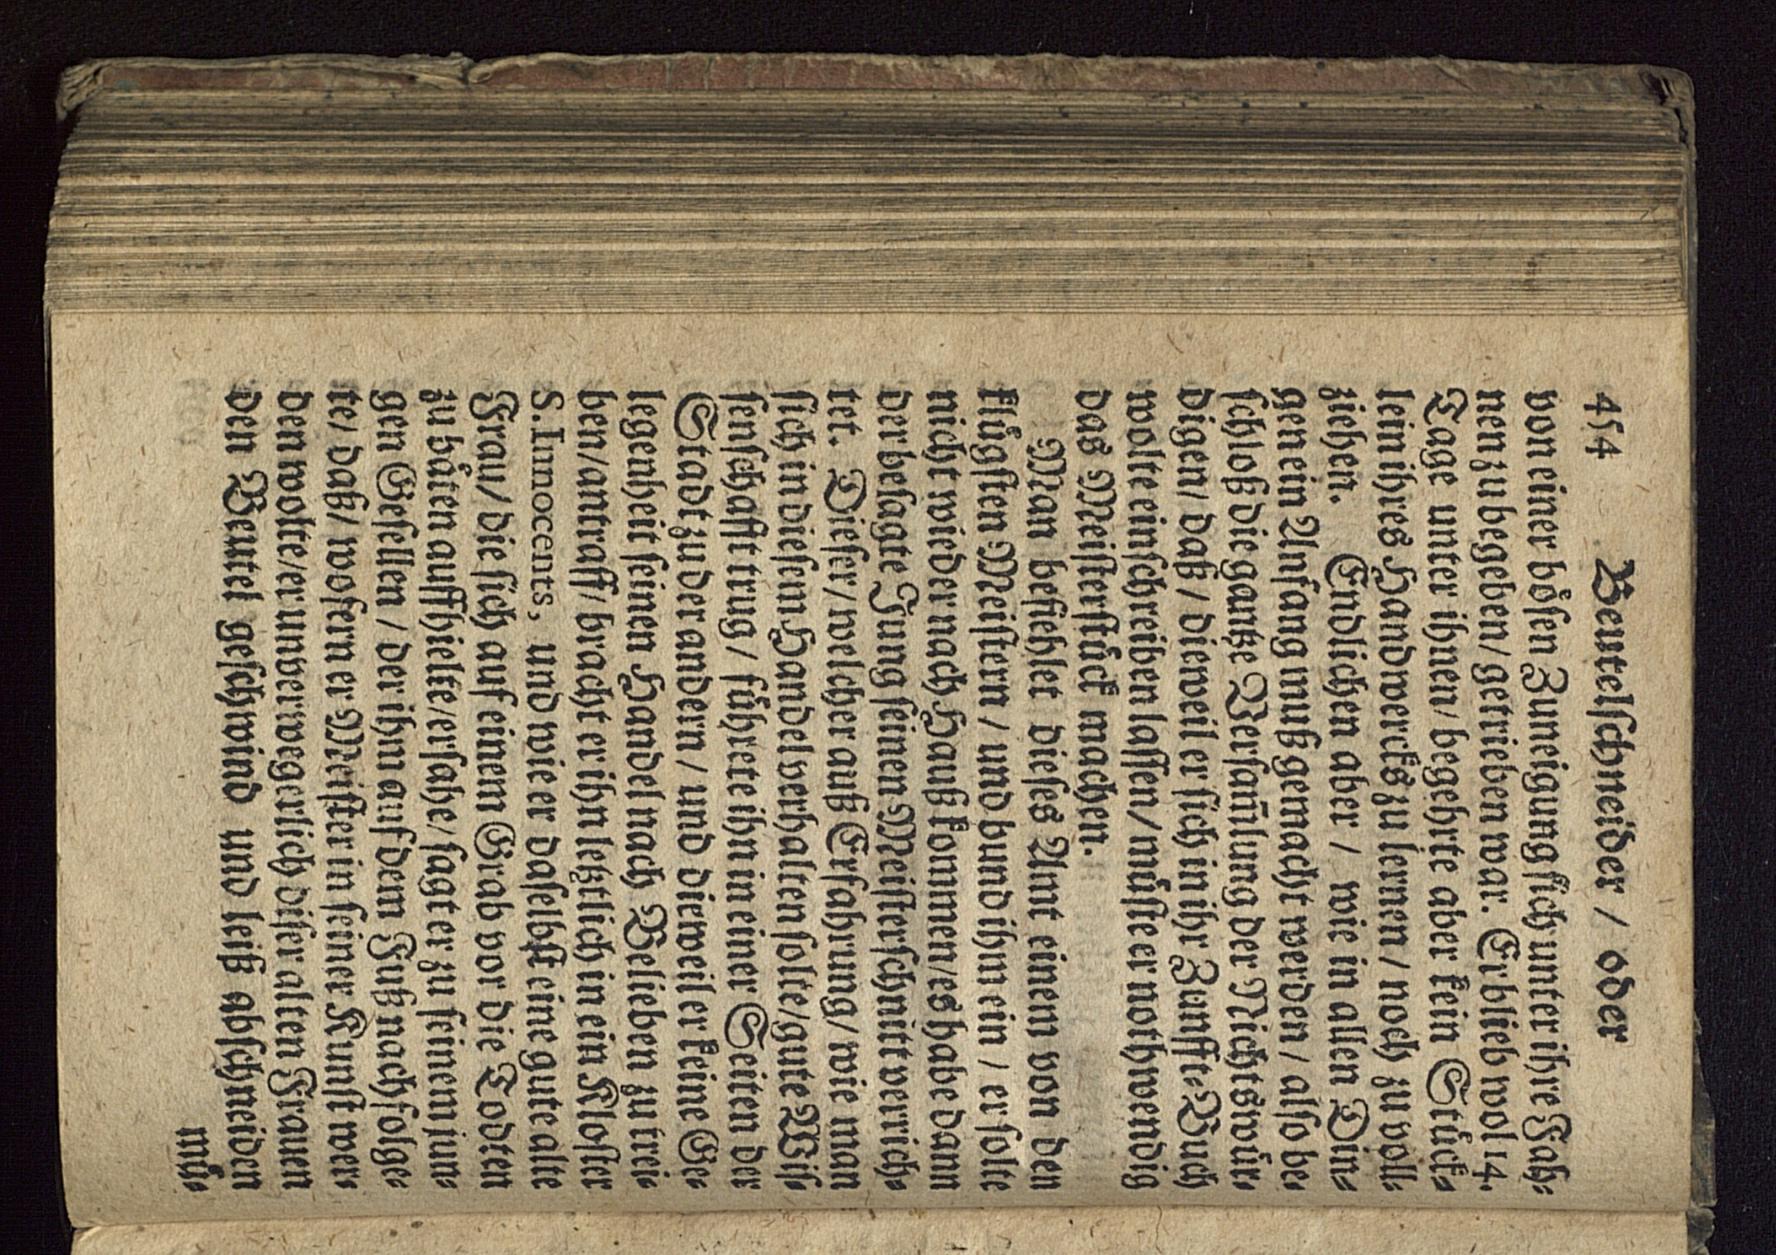 454 Beutelſchneider / oder
von einer boͤſen Zuneigung ſich unter ihre Fah⸗
nen zu begeben / getrieben war. Er blieb wol 14.
Tage unter ihnen / begehrte aber kein Stuͤck⸗
lein ihres Handwercks zu lernen / noch zu voll⸗
ziehen. Endlichen aber / wie in allen Din⸗
gen ein Anfang muß gemacht werden / alſo be⸗
ſchloß die gantze Verſam̃lung der Nichtswuͤr⸗
digen / daß / dieweil er ſich in ihr Zunfft⸗Buch
wolte einſchreiben laſſen / muͤſte er nothwendig
das Meiſterſtuͤck machen.
Man befiehlet dieſes Amt einem von den
kluͤgſten Meiſtern / und bund ihm ein / er ſolte
nicht wieder nach Hauß kommen / es habe dann
der beſagte Jung ſeinen Meiſterſchnitt verrich⸗
tet. Dieſer / welcher auß Erfahrung / wie man
ſich in dieſem Handel verhalten ſolte / gute Wiſ⸗
ſenſchafft trug / fuͤhrete ihn in einer Seiten der
Stadt zu der andern / und dieweil er keine Ge⸗
legenheit ſeinen Handel nach Belieben zu trei⸗
ben / antraff / bracht er ihn letztlich in ein Kloſter
S. Innocents, und wie er daſelbſt eine gute alte
Frau / die ſich auf einem Grab vor die Todten
zu baͤten auffhielte / erſahe / ſagt er zu ſeinem jun⸗
gen Geſellen / der ihn auf dem Fuß nachfolge⸗
te / daß / wofern er Meiſter in ſeiner Kunſt wer⸗
den wolte / er unverwegerlich diſer alten Frauen
den Beutel geſchwind und leiß abſchneiden
muͤſ⸗